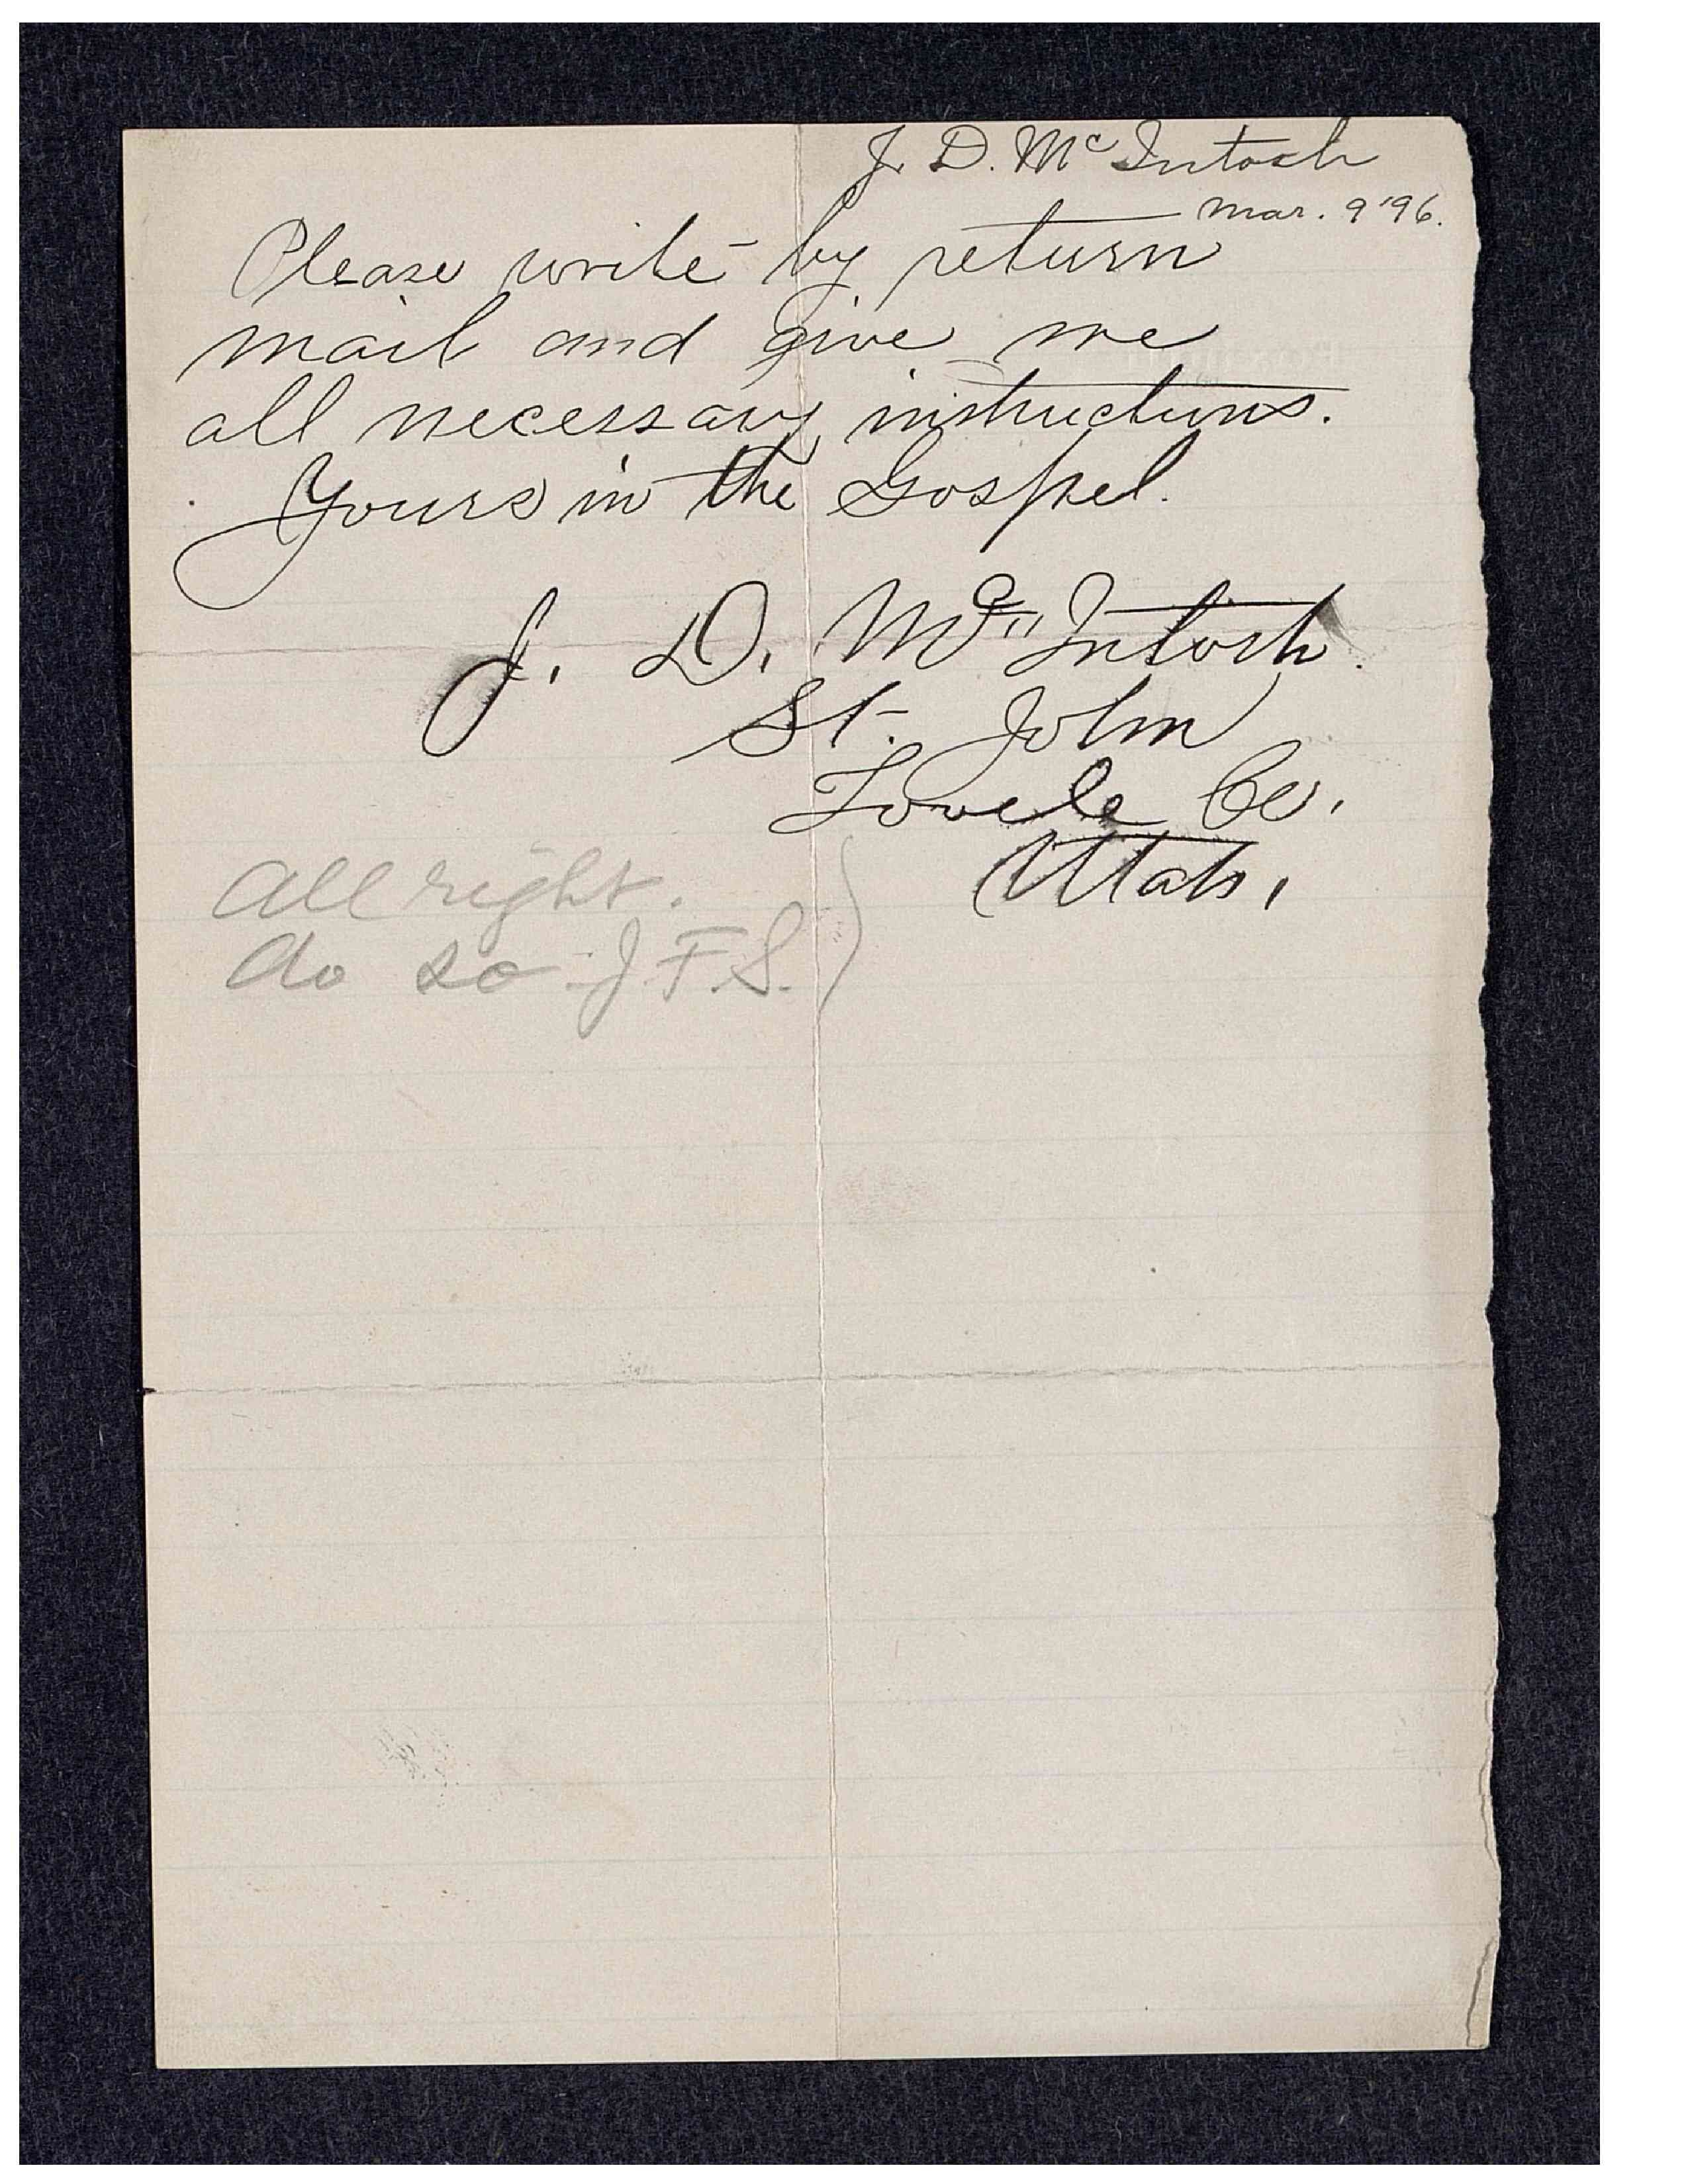 J. D. McIntosh
Mar. 9 '96.
Please write by return
mail and give me
all necessary instructions.
Yours in the Gospel.
J. D. McIntosh.
St. John
Tooele Co.
Utah.
All right.
do so. J.F.S.